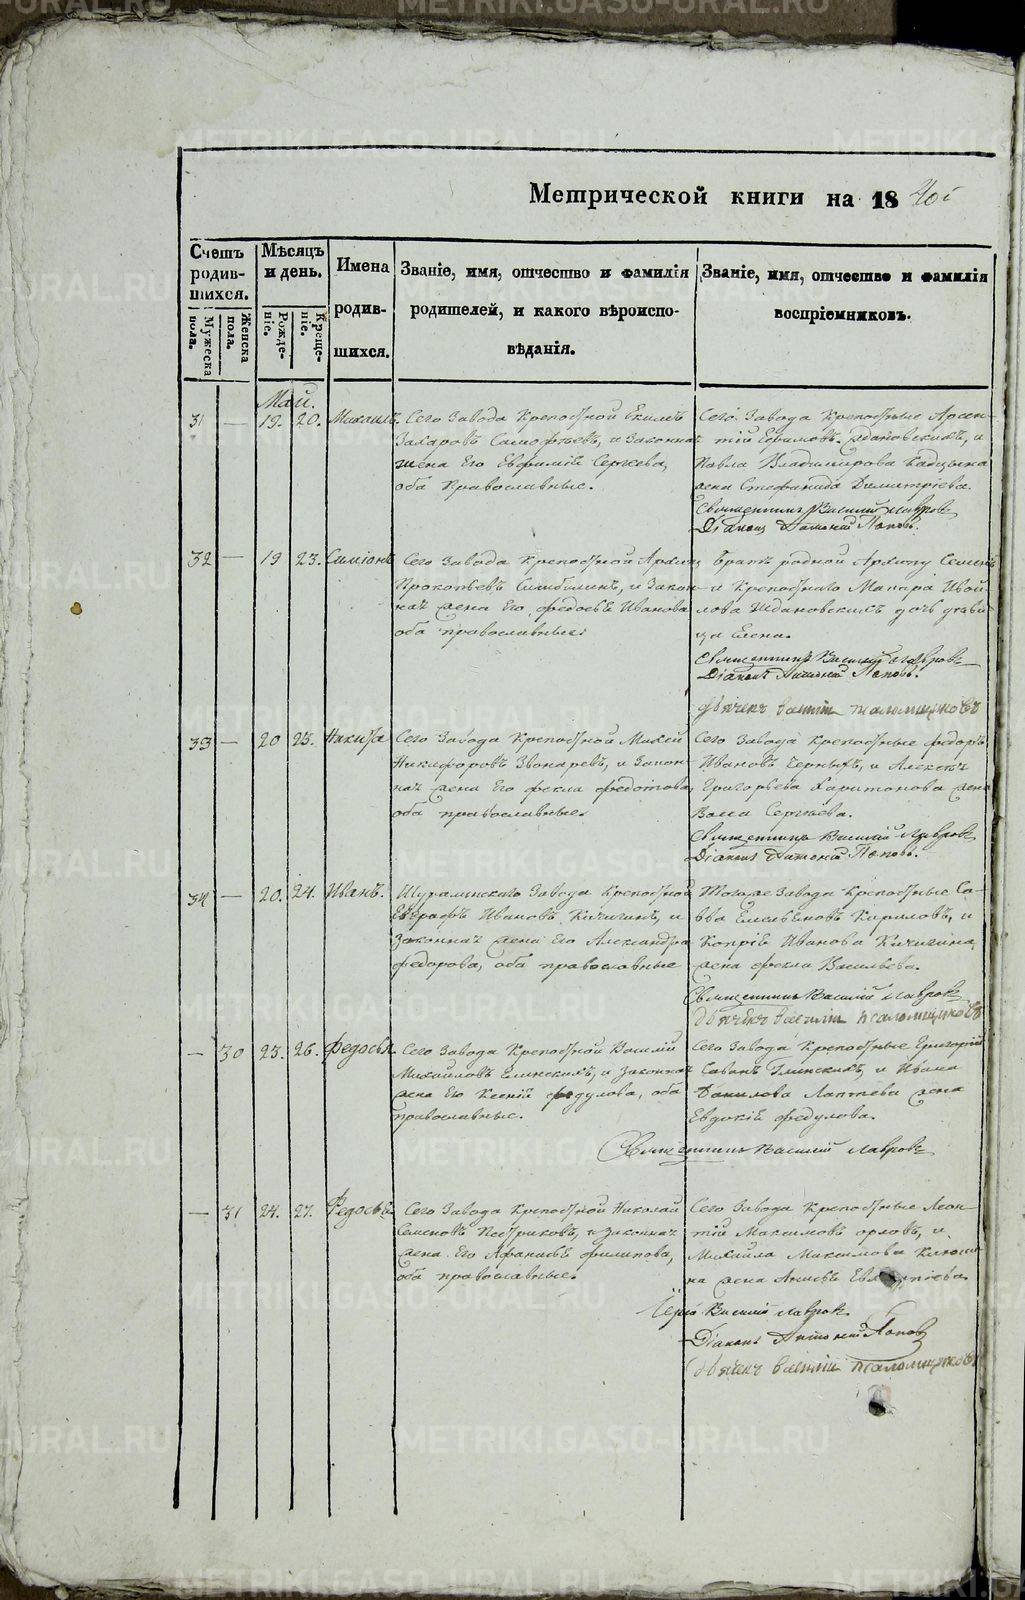 METRIKI.GASO-URAL.RU
Метрической книги на 18 40й
Счетъ родив-шихся.
Мужеска пола.
Женска пола.
Мѣсяцъ и день.
Рожде-ніе.
Креще-ніе.
Имена родив-шихся.
Званіе, имя, отчество и фамилія
родителей, и какого вѣроиспо-
вѣданія.
Званіе, имя, отчество и фамилія
воспріемниковъ.
Май.
31 — 19. 20. Михаилъ.
Сего Завода Крепостной Екимъ
Захаровъ, и Законная
жена Его Евфимія Сергѣева,
оба Православные.
Сего Завода Крепостные Арсен-
тій Ефимовъ, и
Павла Владимирова
жена Стефанида Димитріева.
Священникъ Василій Лавровъ
Діаконъ Антоній Поповъ.
32 — 19 23. Симіонъ
Сего Завода Крепостной Архипъ
Прокопьевъ, и Закон-
ная жена Его Федосья Иванова
оба православные.
Братъ родной Архипу Семенъ
и Крепостнаго Макара
Ждановскихъ дочь дѣви-
ца Елена.
Священникъ Василій Лавровъ
Діаконъ Антоній Поповъ.
дьячекъ Василій Псаломщиковъ
33 — 20 23. Никита
Сего Завода Крепостной Михей
Никифоровъ Звонаревъ, и Закон-
ная жена Его Фекла Федотова,
оба православные.
Сего Завода Крепостные Федоръ
Ивановъ Черныхъ, и Алексѣя
Григорьева Харитонова жена
Васса Сергѣева.
Священникъ Василій Лавровъ
Діаконъ Антоній Поповъ.
34 — 20. 24. Иванъ.
Шуралинскаго Завода Крепостной
Евграфъ Ивановъ Кичигинъ, и
Законная жена Его Александра
Федорова, оба православные
Тогоже Завода Крепостные Са-
ва Емельяновъ Кириловъ, и
Иванова Кичигина
жена Фекла Васильева.
Священникъ Василій Лавровъ
дьячекъ Василій Псаломщиковъ
— 30 25. 26. Федосья
Сего Завода Крепостной Василій
Михайловъ, и Законная
жена Его Ксенія Федулова, оба
православные.
Сего Завода Крепостные Григорій
Савинъ Глинскихъ, и Ивана
Данилова Лаптева жена
Евдокія Федулова.
Священникъ Василій Лавровъ
— 31 24. 27. Федосья
Сего Завода Крепостной Николай
Семеновъ Пестриковъ, и Законная
жена Его Афанасья Филипова,
оба православные.
Сего Завода Крепостные Леон-
тій Максимовъ Орловъ, и
Михайла Максимова
жена Анисья
Іерей Василій Лавровъ
Діаконъ Антоній Поповъ
дьячекъ Василій Псаломщиковъ